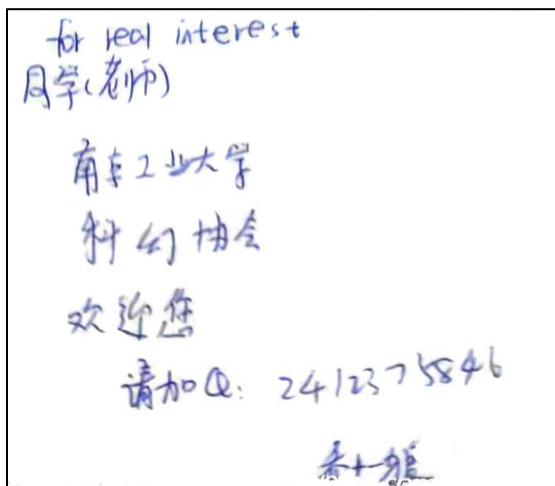 for real interest
同学(老师)
南京工业大学
科幻协会
欢迎您
请加Q: 2412375846